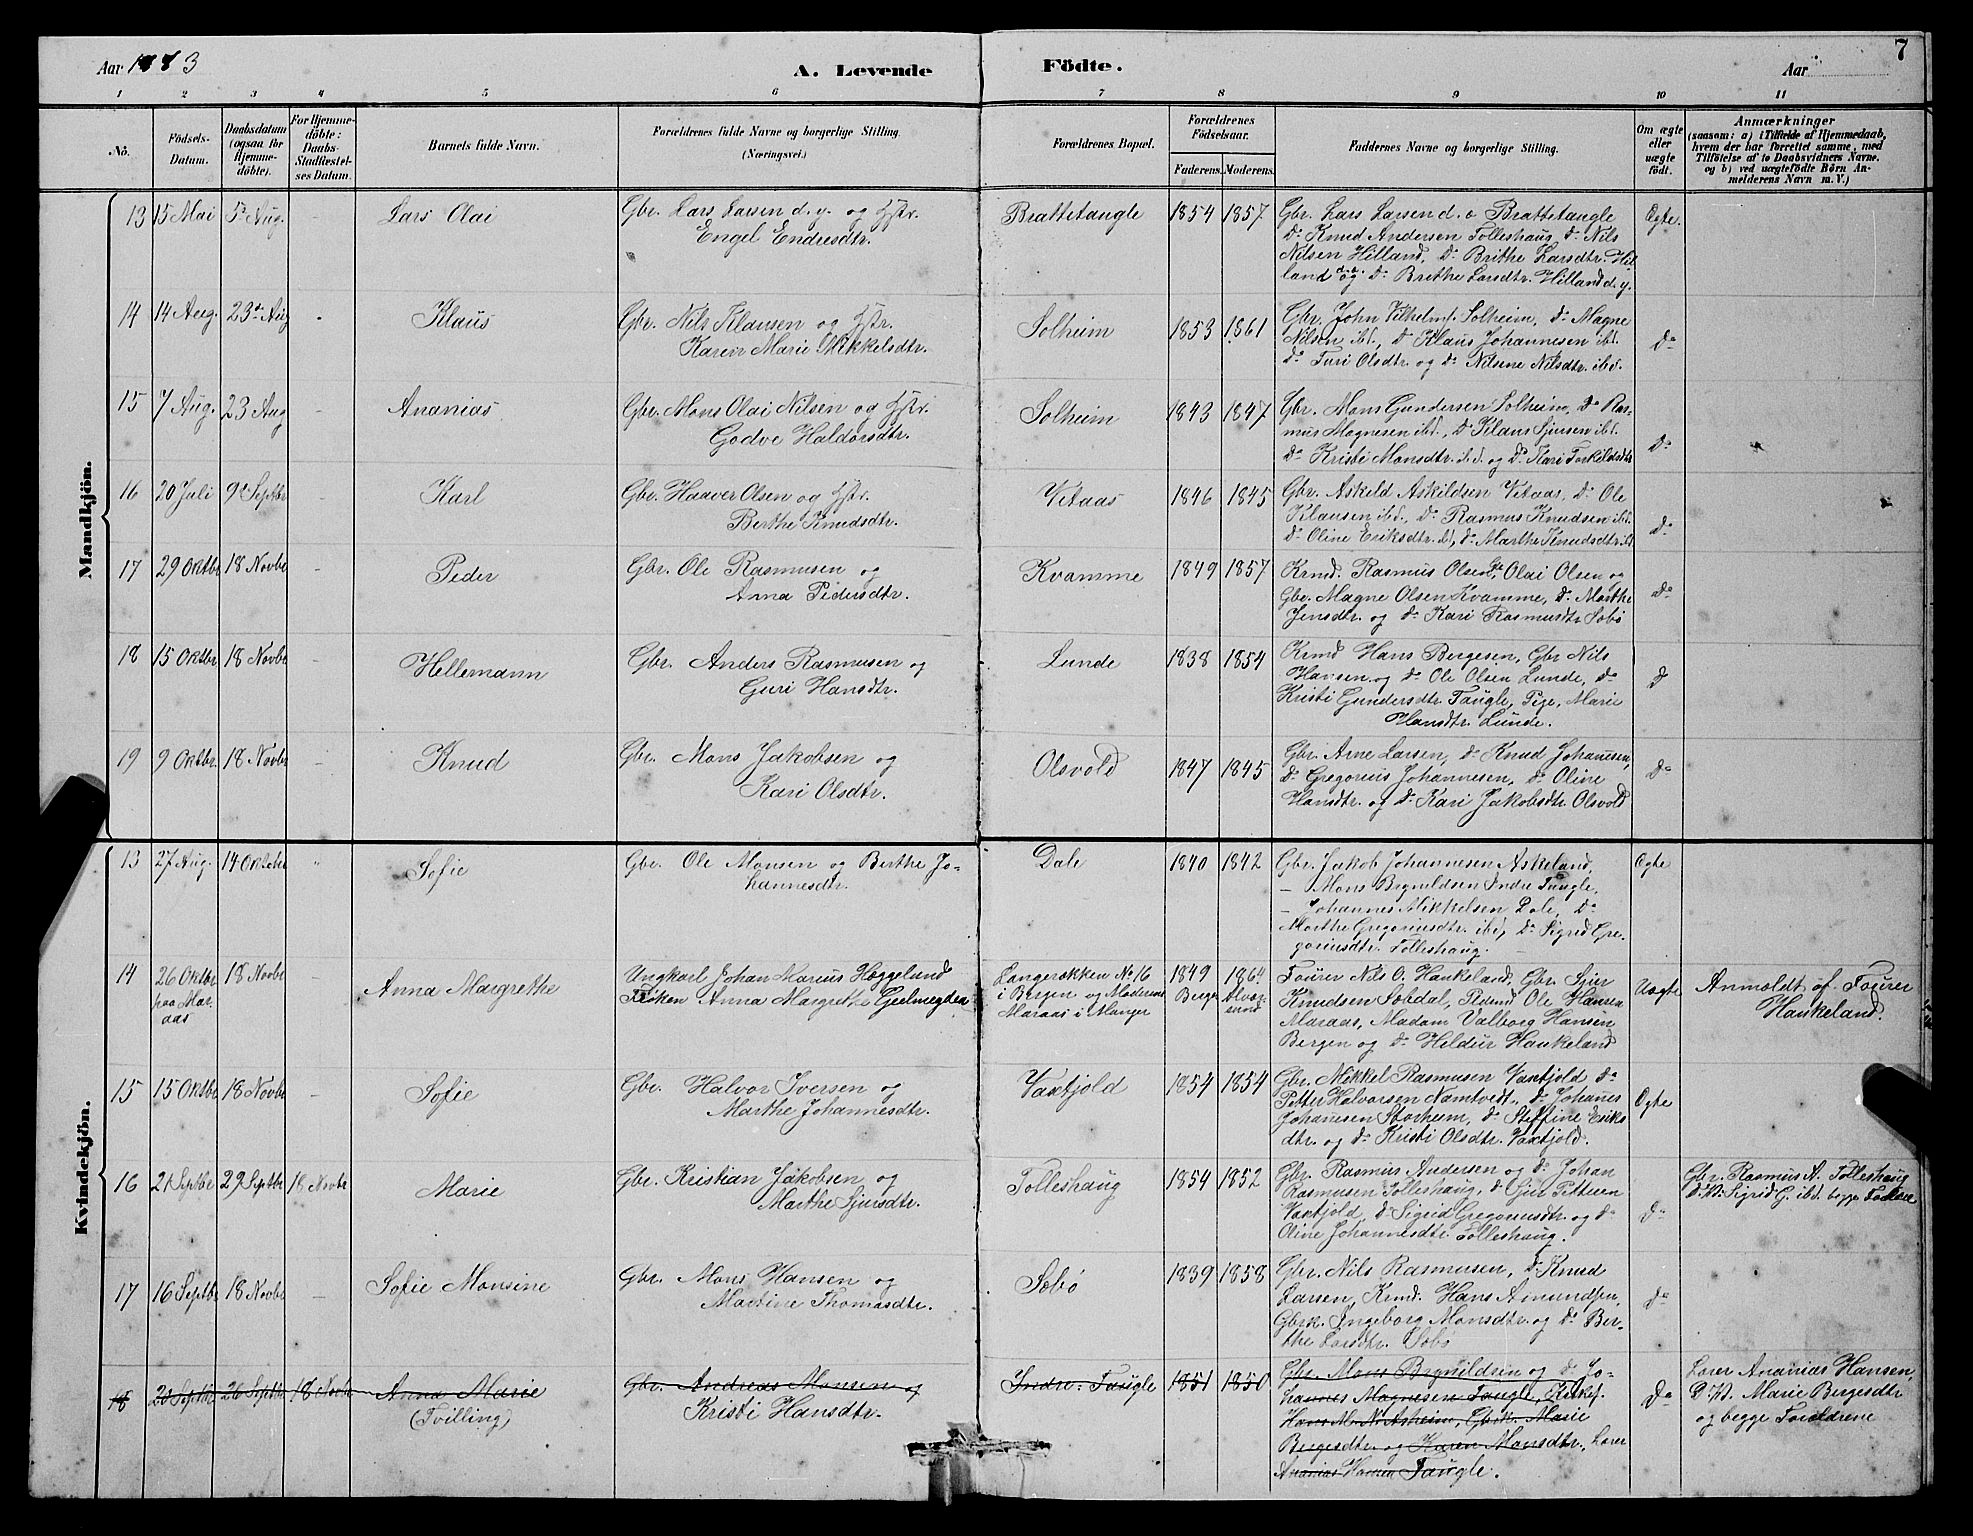 7
Aar 1883
A. Levende
Födte.
Aar
1 2 3 4 5 6 7 8 9 10 11
No.
Födsels-
Datum.
Daabsdatum
(ogsaa for
Hjemme-
döbte).
For Hjemme-
döbte:
Daabs-
Stadfæstel-
ses Datum.
Barnets fulde Navn.
Forældrenes fulde Navne og borgerlige Stilling.
(Næringsvei.)
Forældrenes Bopæl.
Forældrenes
Födselsaar.
Faderens. Moderens.
Faddernes Navne og borgerlige Stilling.
Om ægte
eller
uægte
födt.
Anmærkninger
(saasom: a) i Tilfælde af Hjemmedaab,
hvem der har forrettet samme, med
Tilföielse af to Daabsvidners Navne,
og b) ved uægtefödte Börn An-
melderens Navn m. V.)
Mandkjön.
13 15 Mai 5t Aug. - Lars Olai
Gbr. Lars Larsen d. y. og Hstr.
Engel Endresdtr.
Brattetaugle 1854 1857
Gbr. Lars Larsen d. e Brattetaugle
Do Knud Andersen Tolleshaug, do Nils
Nilsen Hilland, Do Brithe Larsdtr. Hil-
land d. e. og Do Brethe Larsdtr. Hilland d. y.
Ægte.
14 14 Aug. 23de Aug - Klaus
Gbr. Nils Klausen og Hstr.
Karen Marie Mikkelsdtr.
Solheim 1853 1861
Gbr. John Vilhelms. Solheim, do Magne
Nilsen ibd., Do Klaus Johannesen ibd.
Do Turi Olsdtr. og Do Nilsine Nilsdtr. ibd.
Do
15 7 Aug. 23 Aug - Ananias
Gbr. Mons Olai Nilsen og Hstr.
Godve Haldorsdtr.
Solheim 1843 1847
Gbr. Mons Gundersen Solheim, do Ras-
mus Magnesen ibd., Do Klaus Sjursen ibd.
Do Kristi Monsdtr. ibd. og Do Kari Torkildsdtr
Do
16 20 Juli 9de Septbr - Karl
Gbr. Haaver Olsen og Hstr.
Berthe Knudsdtr.
Vetaas 1846 1845
Gbr. Askeld Askildsen Vetaas, Do Ole
Klausen ibd., Do Rasmus Knudsen ibd.
Do Oline Eriksdtr. ibd, do Marthe Knudsdtr ibd
Do
17 29 Oktbr 18 Novbr - Peder
Gbr. Ole Rasmusen og
Anna Pedersdtr.
Kvamme 1849 1857
Krmd. Rasmus Olsen, do Olai Olsen og
Gbr. Magne Olsen Kvamme, Do Marthe
Jensdtr. og do Kari Rasmusdtr Sæbö
Do
18 15 Oktbr 18 Novbr - Hellemann
Gbr. Anders Rasmusen og
Guri Hansdtr.
Lunde 1838 1854
Krmd Hans Bergesen, Gbr Nils
Hansen og do Ole Olsen Lunde, do
Kristi Gundersdtr. Taugle, Pige, Marie
Hansdtr. Lunde.
Do
19 9 Oktbr. 18 Novbr - Knud
Gbr. Mons Jakobsen og
Kari Olsdtr.
Olsvold 1847 1845
Gbr. Arne Larsen, do Knud Johannesen,
Do Gregorius Johannesen, do Oline
Hansdtr. og do Kari Jakobsdtr. Olsvold
Do
Kvindekjön.
13 27 Aug. 14 Oktobr " Sofie
Gbr. Ole Monsen og Berthe Jo-
hannesdtr.
Dale 1840 1842
Gbr. Jakob Johannesen Askeland,
- Mons Brynildsen Indre Taugle,
- Johannes Mikkelsen Dale, Do
Marthe Gregoriusdtr. ibd, Do Sigrid Gre-
goriusdtr. Tolleshaug.
Ægte
14 26 Oktbr
paa Mar-
aas
18 Novbr - Anna Margrethe
Ungkarl Johan Marius Heggelund
Fröken Anna Margrethe Geelmeyden
Langerækken No 16
i Bergen og Moderens
Maraas i Manger
1849
Bergen
1864
Alver-
sund
Tourer Nils O. Haukeland, Gbr. Sjur
Knudsen Sæbdal, Pedmd Ole Hansen
Maraas, Madam Valborg Hansen
Bergen og Do Heldur Haukeland
Uægte
Anmeldt af Tourer
Haukeland.
15 15 Oktbr 18 Novbr - Sofie
Gbr. Halvor Iversen og
Marthe Johannesdtr.
Vaxtjold 1854 1854
Gbr. Mikkel Rasmusen Vaxtjold do
Petter Halvorsen Namtvedt, do Johannes
Johannesen Storheim, do Steffine Eriks
dtr. og do Kristi Olsdtr. Vaxtjold.
Ægte
16 21 Septbr 29 Septbr 18 Novbr Marie
Gbr. Kristian Jakobsen og
Marthe Sjursdtr.
Tolleshaug 1854 1852
Gbr. Rasmus Andersen og do Johan
Rasmusen Tolleshaug, do Sjur Pettersen
Vaxtjold, do Sigrid Gregoriusdtr. og do
Oline Johannesdtr. Tolleshaug.
Do
Gbr. Rasmus A. Tolleshaug
D.V. Sigrid G. ibd. begge Forældre
17 16 Septbr 18 Novbr - Sofie Monsine
Gbr. Mons Hansen og
Martine Thomasdtr.
Sæbö 1839 1858
Gbr. Nils Rasmusen, do Knud
Larsen, Krmd. Hans Amundsen,
Gbrk. Ingeborg Monsdtr. og do Ber-
the Larsdtr. Sæbö
Do
18 20 Septbr 26 Septbr 18 Novbr Anna Marie
(Tvilling)
Gbr. Andreas Monsen og
Kristi Hansdtr.
Indre Taugle 1851 1850
Gbr. Mons Brynildsen og do Jo-
hannes Magnesen Taugle, Kirks.
Hans M. N. Askeim, Gbrk. Marie
Bergesdtr og Karen Monsdtr., Lærer
Ananias Hansen Taugle.
Do
Lærer Ananias Hansen,
D.V. Marie Bergesdtr
og begge Forældrene